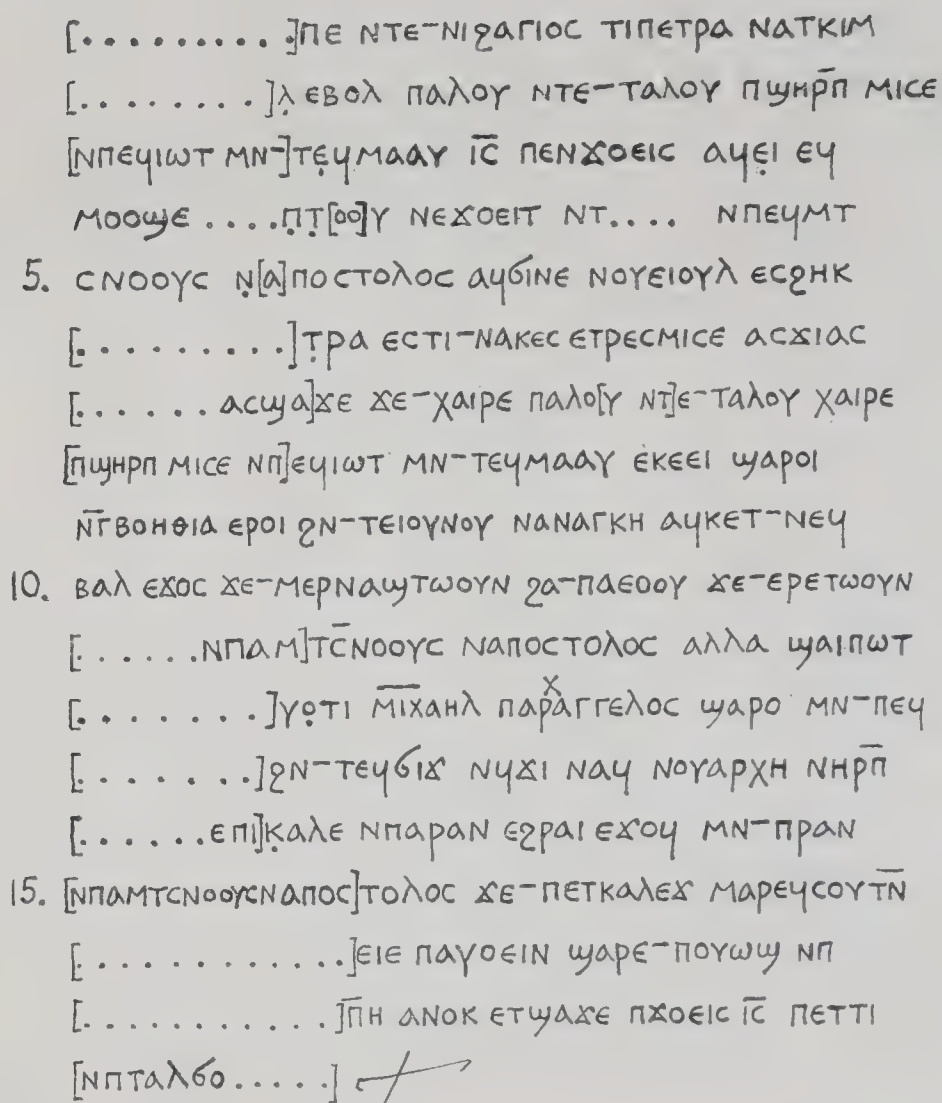 [. . . . . . . . . .]ⲡⲉ ⲛⲧⲉ-ⲛⲓϩⲁⲅⲓⲟⲥ ⲧⲓⲡⲉⲧⲣⲁ ⲛⲁⲧⲕⲓⲙ
[. . . . . . . . ]ⲗ̣ ⲉⲃⲟⲗ ⲡⲁⲗⲟⲩ ⲛⲧⲉ-ⲧⲁⲗⲟⲩ ⲡϣⲏⲣⲡ̄ ⲙⲓⲥⲉ
[ⲛⲡⲉϥⲓⲱⲧ ⲙⲛ-]ⲧⲉ̣ϥⲙⲁⲁⲩ ⲓ̄ⲥ̄ ⲡⲉⲛϫⲟⲉⲓⲥ ⲁϥⲉ̣ⲓ ⲉϥ
ⲙⲟⲟϣⲉ . . . . ⲡ̣ⲧ̣[ⲟⲟ]ⲩ ⲛⲉϫⲟⲉⲓⲧ ⲛⲧ. . . . ⲛⲡⲉϥⲙⲧ
5. ⲥⲛⲟⲟⲩⲥ ⲛ̣[ⲁ]ⲡⲟⲥⲧⲟⲗⲟⲥ ⲁϥϭⲓⲛⲉ ⲛⲟⲩⲉⲓⲟⲩⲗ ⲉⲥϩⲏⲕ
[. . . . . . . . . .]ⲧ̣ⲣⲁ ⲉⲥⲧⲓ-ⲛⲁⲕⲉⲥ ⲉⲧⲣⲉⲥⲙⲓⲥⲉ ⲁⲥϫⲓⲁⲥ
[. . . . . . ⲁⲥϣⲁ]ϫⲉ ϫⲉ-ⲭⲁⲓⲣⲉ ⲡⲁⲗⲟ[ⲩ ⲛⲧ]ⲉ-ⲧⲁⲗⲟⲩ ⲭⲁⲓⲣⲉ
[ⲡϣⲏⲣⲡ ⲙⲓⲥⲉ ⲛⲡ]ⲉϥⲓⲱⲧ ⲙⲛ-ⲧⲉϥⲙⲁⲁⲩ ⲉⲕⲉⲉⲓ ϣⲁⲣⲟⲓ
ⲛ̄ⲅⲃⲟⲏⲑⲓⲁ ⲉⲣⲟⲓ ϩⲛ-ⲧⲉⲓⲟⲩⲛⲟⲩ ⲛⲁⲛⲁⲅⲕⲏ ⲁϥⲕⲉⲧ-ⲛⲉϥ
10. ⲃⲁⲗ ⲉϫⲟⲥ ϫⲉ-ⲙⲉⲣⲛⲁϣⲧⲱⲟⲩⲛ ϩⲁ-ⲡⲁⲉⲟⲟⲩ ϫⲉ-ⲉⲣⲉⲧⲱⲟⲩⲛ
[. . . . . .ⲛⲡⲁⲙ]ⲧⲥ̄ⲛⲟⲟⲩⲥ ⲛⲁⲡⲟⲥⲧⲟⲗⲟⲥ ⲁⲗⲗⲁ ϣⲁⲓⲡⲱⲧ
[. . . . . . . .]ⲩⲟ̣ⲧⲓ ⲙ̄ⲓ̄ⲭⲁⲏⲗ ⲡⲁⲣⲭⲁⲅⲅⲉⲗⲟⲥ ϣⲁⲣⲟ ⲙⲛ-ⲡⲉϥ
[. . . . . . .]ϩⲛ-ⲧⲉϥϭⲓϫ ⲛϥϫⲓ ⲛⲁϥ ⲛⲟⲩⲁⲣⲭⲏ ⲛⲏⲣⲡ̄
[. . . . . .ⲉⲡⲓ]ⲕ̣ⲁⲗⲉ ⲛⲡⲁⲣⲁⲛ ⲉϩⲣⲁⲓ ⲉϫⲟϥ ⲙⲛ-ⲡⲣⲁⲛ
15. [ⲛⲡⲁⲙⲧⲥⲛⲟⲟⲩⲥⲛⲁⲡⲟⲥ]ⲧⲟⲗⲟⲥ ϫⲉ-ⲡⲉⲧⲕⲁⲗⲉϫ ⲙⲁⲣⲉϥⲥⲟⲩⲧⲛ̄
[. . . . . . . . . . . . .]ⲉⲓⲉ ⲡⲁⲩⲟⲉⲓⲛ ϣⲁⲣⲉ-ⲡⲟⲩⲱϣ ⲛⲡ
[. . . . . . . . . . . .]ⲡ̄ⲏ ⲁⲛⲟⲕ ⲉⲧϣⲁϫⲉ ⲡϫⲟⲉⲓⲥ ⲓ̄ⲥ̄ ⲡⲉⲧⲧⲓ
[ⲛⲡⲧⲁⲗϭⲟ. . . . .]